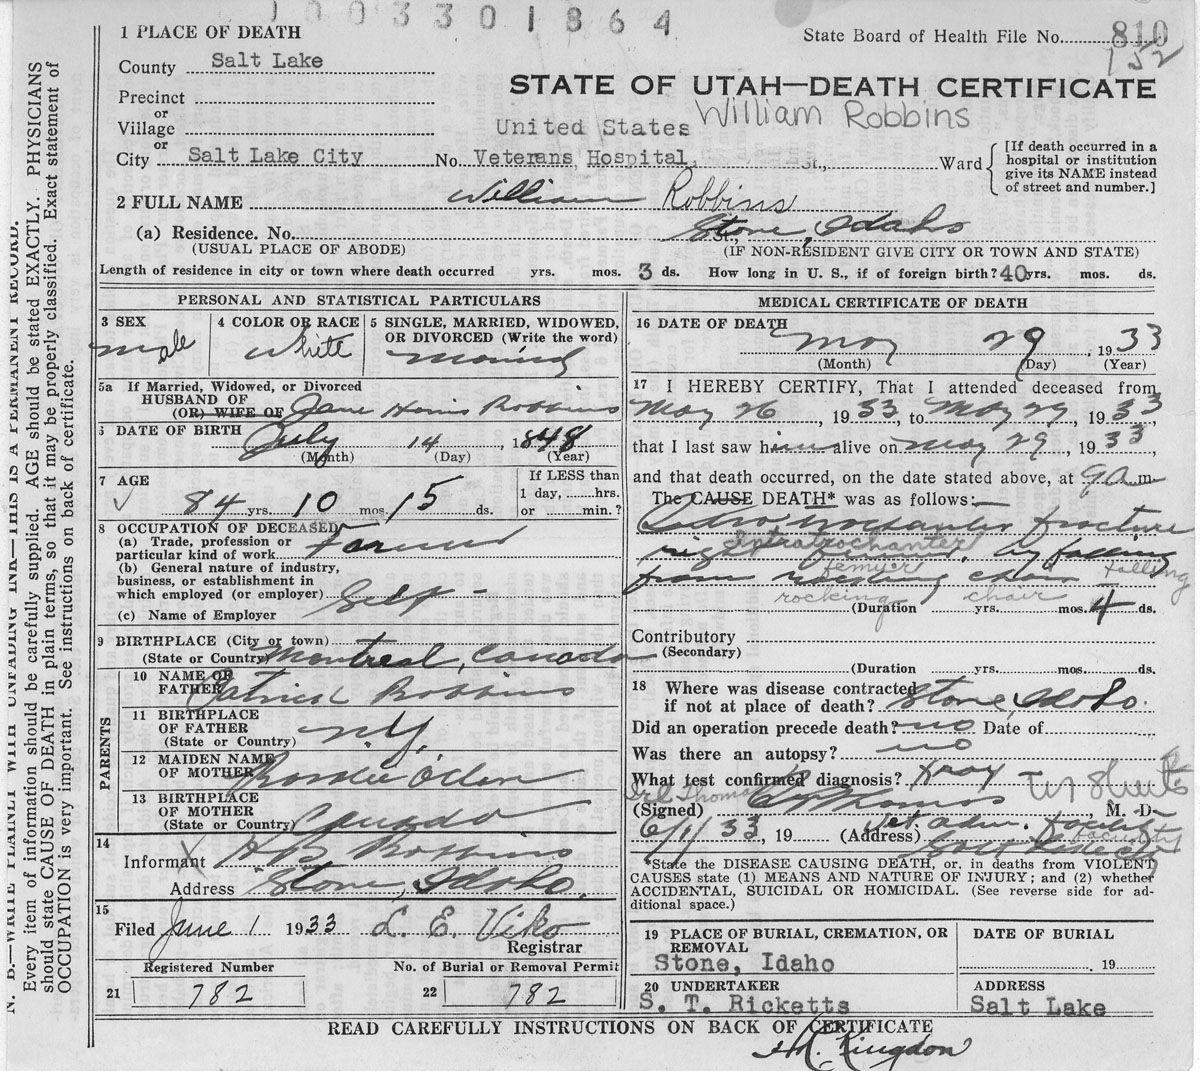 1003301864
1 PLACE OF DEATH
State Board of Health File No. 810
152
County Salt Lake
STATE OF UTAH—DEATH CERTIFICATE
Precinct
William Robbins
or
Village
United States
or
City Salt Lake City No. Veterans Hospital, St., Ward
[If death occurred in a
hospital or institution
give its NAME instead
of street and number.]
2 FULL NAME William Robbins
(a) Residence. No. St., Stone, Idaho
(USUAL PLACE OF ABODE) (IF NON-RESIDENT GIVE CITY OR TOWN AND STATE)
Length of residence in city or town where death occurred yrs. mos. 3 ds. How long in U. S., if of foreign birth? 40 yrs. mos. ds.
PERSONAL AND STATISTICAL PARTICULARS
3 SEX
male
4 COLOR OR RACE
White
5 SINGLE, MARRIED, WIDOWED,
OR DIVORCED (Write the word)
married
5a If Married, Widowed, or Divorced
HUSBAND OF
(OR) WIFE OF Jane Harris Robbins
6 DATE OF BIRTH July 14 1848
(Month) (Day) (Year)
7 AGE
84 yrs. 10 mos. 15 ds.
If LESS than
1 day, hrs.
or min.?
8 OCCUPATION OF DECEASED
(a) Trade, profession or
particular kind of work Farmer
(b) General nature of industry,
business, or establishment in
which employed (or employer) Self -
(c) Name of Employer
9 BIRTHPLACE (City or town)
(State or Country) Montreal, Canada
PARENTS
10 NAME OF
FATHER Patrick Robbins
11 BIRTHPLACE
OF FATHER
(State or Country) N.Y.
12 MAIDEN NAME
OF MOTHER
13 BIRTHPLACE
OF MOTHER
(State or Country) Canada
14
Informant Robbins
Address Stone, Idaho.
15
Filed June 1 1933 L. E. Viko
Registrar
Registered Number No. of Burial or Removal Permit
21 782 22 782
MEDICAL CERTIFICATE OF DEATH
16 DATE OF DEATH
May 29, 1933
(Month) (Day) (Year)
17 I HEREBY CERTIFY, That I attended deceased from
May 26, 1933, to May 29, 1933
that I last saw him alive on May 29, 1933
and that death occurred, on the date stated above, at 9 a.m
The CAUSE DEATH* was as follows:
Intra trochanter fracture
Intratrochanter
right femur, by falling
femyer
from rocking chair falling
rocking chair
(Duration yrs. mos. 4 ds.
Contributory
(Secondary)
(Duration yrs. mos. ds.
18 Where was disease contracted
if not at place of death? Stone, Idaho.
Did an operation precede death? no Date of
Was there an autopsy? no
What test confirmed diagnosis? Xray -
Thomas
(Signed) Thomas M. D.
6/1/33, 19 (Address) Vet. Adm. Facility
Facility
Salt Lake City
*State the DISEASE CAUSING DEATH, or, in deaths from VIOLENT
CAUSES state (1) MEANS AND NATURE OF INJURY; and (2) whether
ACCIDENTAL, SUICIDAL OR HOMICIDAL. (See reverse side for ad-
ditional space.)
19 PLACE OF BURIAL, CREMATION, OR
REMOVAL
Stone, Idaho
DATE OF BURIAL
19
20 UNDERTAKER
S. T. Ricketts
ADDRESS
Salt Lake
READ CAREFULLY INSTRUCTIONS ON BACK OF CERTIFICATE
Kingdon
N. B.—WRITE PLAINLY WITH UNFADING INK—THIS IS A PERMANENT RECORD.
Every item of information should be carefully supplied. AGE should be stated EXACTLY. PHYSICIANS
should state CAUSE OF DEATH in plain terms, so that it may be properly classified. Exact statement of
OCCUPATION is very important. See instructions on back of certificate.